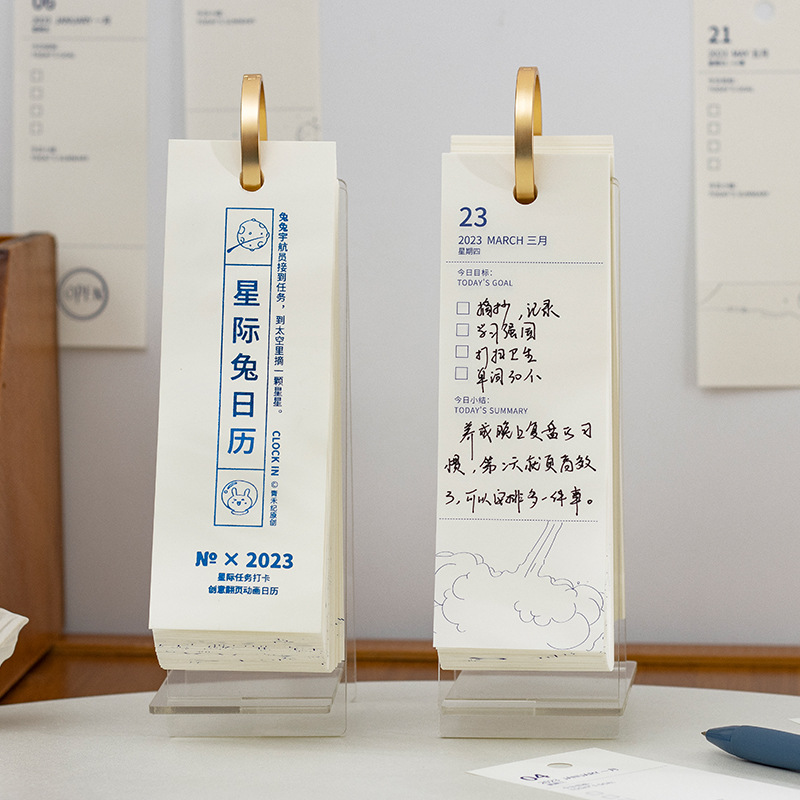 06
2023 JANUARY 一月
TODAY'S GOAL
TODAY'S SUMMARY
OPEN
21
2023 MAY 五月
TODAY'S GOAL
TODAY'S SUMMARY
兔兔宇航员接到任务，到太空里摘一颗星星。
CLOCK IN
©青禾纪原创
星际兔日历
№ × 2023
星际任务打卡
创意翻页动画日历
23
2023 MARCH 三月
星期四
今日目标：
TODAY'S GOAL
摘抄，记录
学习强国
打扫卫生
单词30个
今日小结：
TODAY'S SUMMARY
养成晚上复盘的习
惯，第二天就更高效
了，可以安排多一件事。
04
2023 JANUARY 一月